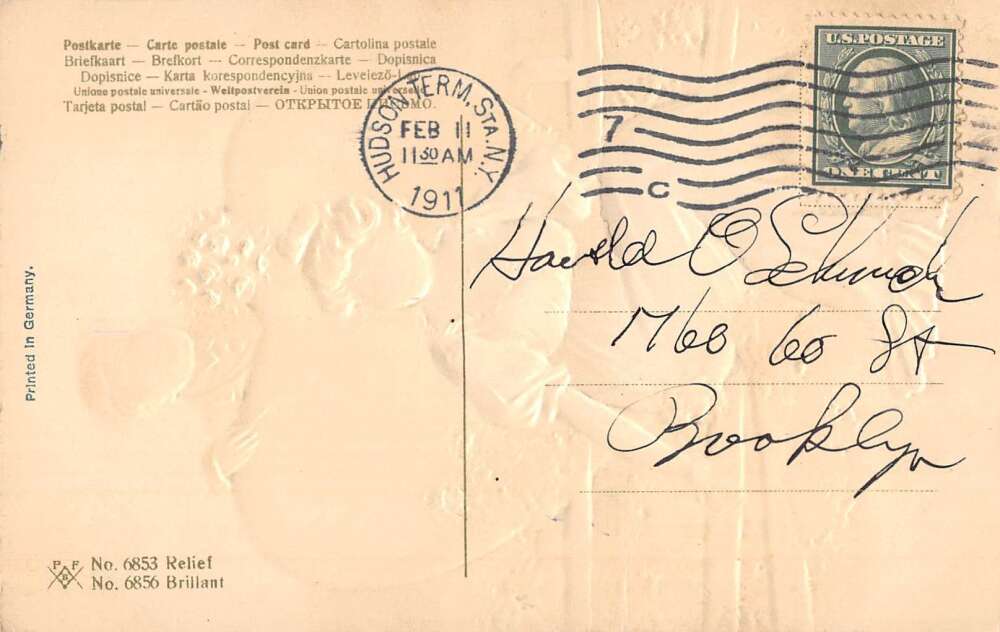 Postkarte — Carte postale — Post card — Cartolina postale
Briefkaart — Brefkort — Correspondenzkarte — Dopisnica
Dopisnice — Karta korespondencyjna — Levelező-L
Unione postale universale - Weltpostverein - Union postale universelle
Tarjeta postal — Cartão postal — ОТКРЫТОЕ ПИСЬМО.
HUDSON TERM. STA. N.Y.
FEB 11
11 30 AM
1911
7
C
U.S. POSTAGE
ONE CENT
Harold O
1760 60 St
Brooklyn
Printed in Germany.
P F
B
No. 6853 Relief
No. 6856 Brillant